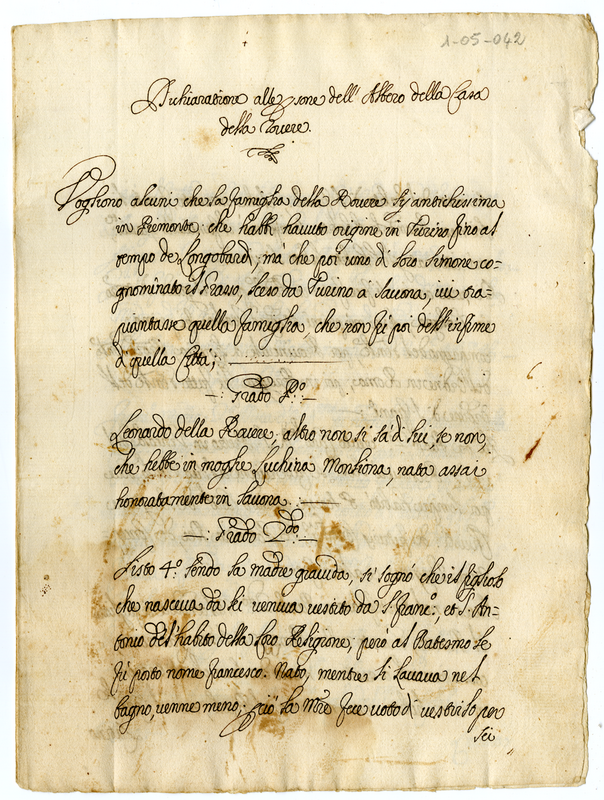 1-05-042
Dichiaratione alle psone dell' Albero della Casa
della Rouere.
Vogliono alcuni che la famiglia della Rouere sij antichissima
in Piemonte; che habbi hauuto origine in Turino fino al
tempo de Longobardi; mà che poi uno di loro Simone co-
gnominato il Grasso, sceso da Turino à Sauona, iui tra-
piantasse quella famiglia, che non fù poi dell'infime
di quella Città;
Grado P.o
Leonardo della Rouere; altro non si sà di lui, se non,
che hebbe in moglie Luchina Monliona, nata assai
honoratamente in Sauona.
Grado 2.do
Sisto 4.o sendo la madre grauida, si sognò che il figliolo
che nasceua da lei veniua vestito da S. Franc.o, et S. An-
tonio dell'habito della loro Religione; però al Batesmo le
fù posto nome Francesco. Nato, mentre si lauaua nel
bagno, venne meno; p ciò la Mre fece voto di vestirlo per
sei